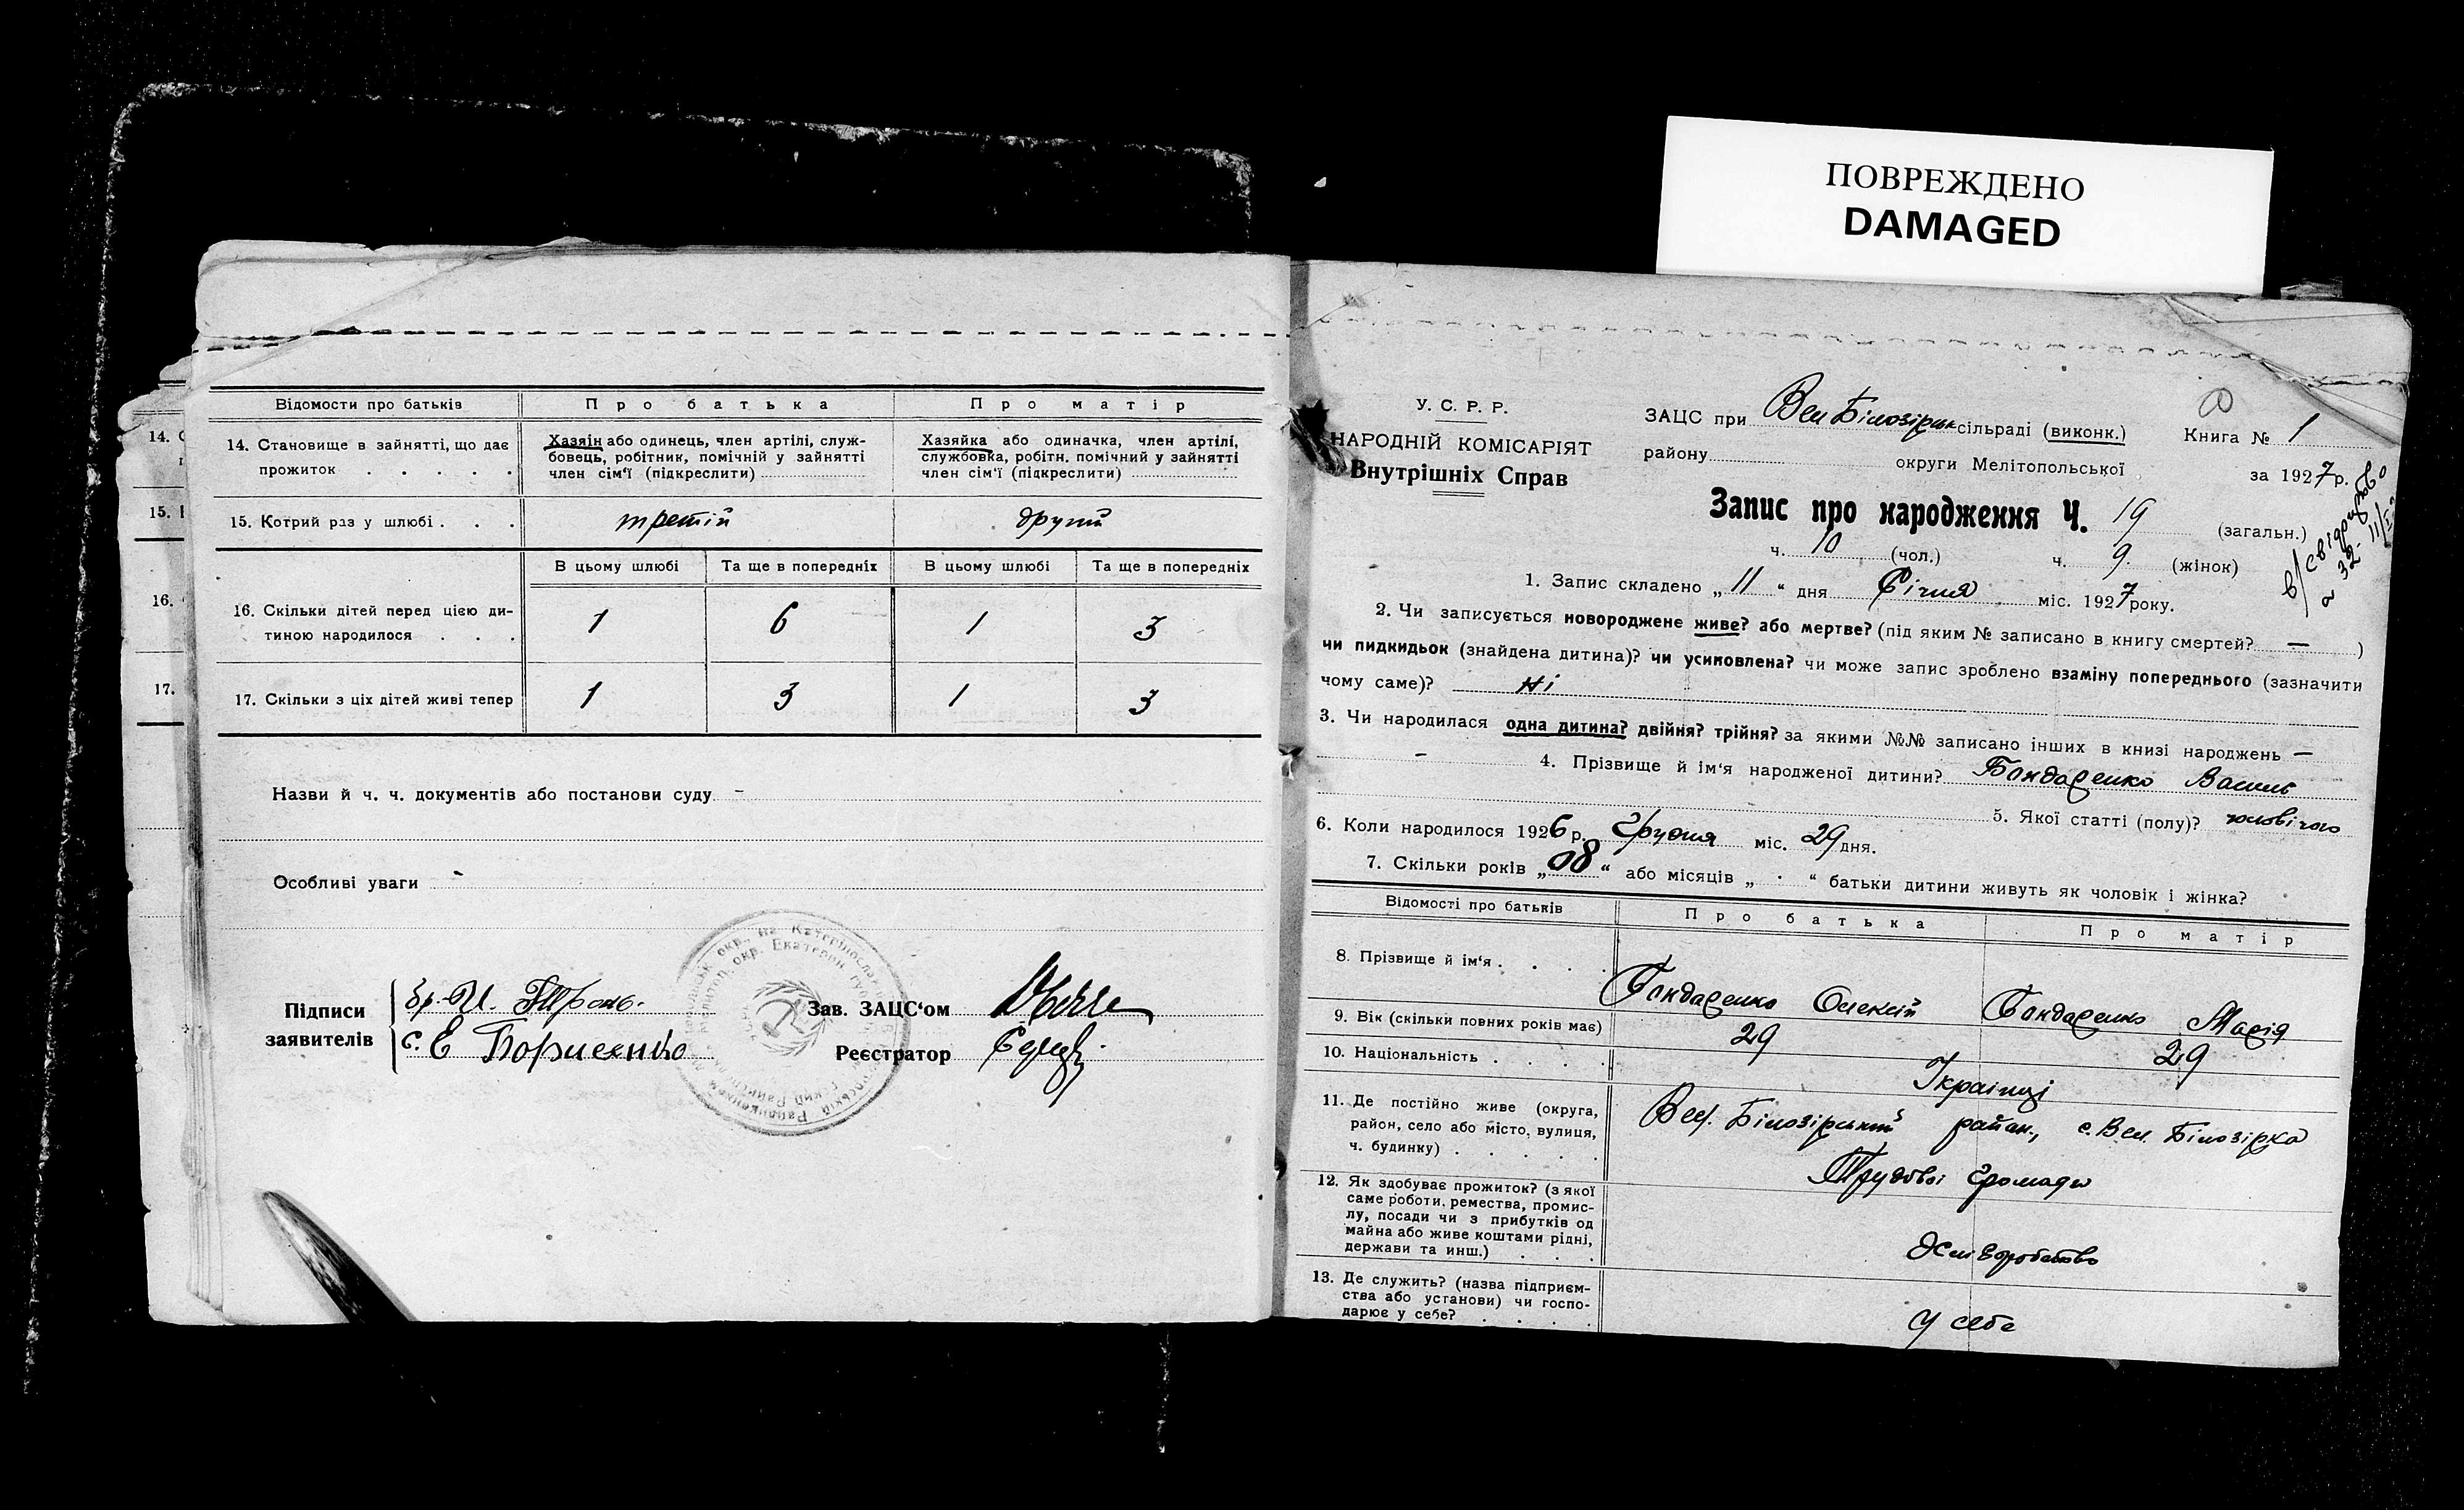 ПОВРЕЖДЕНО
DAMAGED
Відомости про батьків
Про батька
Про матір
14. Становище в зайнятті, що дає
прожиток . . . . .
Хазяін або одинець, член артілі, служ-
бовець, робітник, помічній у зайнятті
член сім‘ї (підкреслити)
Хазяйка або одиначка, член артілі,
службовка, робітн. помічний у зайнятті
член сім‘ї (підкреслити)
15. Котрий раз у шлюбі . . .
третій
другий
В цьому шлюбі
Та ще в попередніх
В цьому шлюбі
Та ще в попередніх
16. Скільки дітей перед цією ди-
тиною народилося . . .
1 6 1 3
17. Скільки з ціх дітей живі тепер
1 3 1 3
Назви й ч. ч. документів або постанови суду -
Особливі уваги -
Підписи
заявителів
Зав. ЗАЦС‘ом
Реєстратор
14.
15.
16.
17.
У. С. Р. Р.
НАРОДНІЙ КОМІСАРІЯТ
Внутрішніх Справ
ЗАЦС при Вел Білозірск сільраді (виконк.)
Книга № 1
району округи Мелітопольської
за 1927 р.
Запис про народження Ч. 19 (загальн.)
ч. 10 (чол.) ч. 9 (жінок)
1. Запис складено „11“ дня Січня міс. 1927 року.
2. Чи записується новороджене живе? або мертве? (під яким № записано в книгу смертей? — )
чи пидкидьок (знайдена дитина)? чи усиновлена? чи може запис зроблено взаміну попереднього (зазначити
чому саме)? ні
3. Чи народилася одна дитина? двійня? трійня? за якими №№ записано інших в книзі народжень —
- 4. Прізвище й ім‘я народженої дитини? Бондаренко Василь
5. Якої статті (полу)? чоловічого
6. Коли народилося 1926 р. Грудня міс. 29 дня.
7. Скільки років „08“ або місяців „ · “ батьки дитини живуть як чоловік і жінка?
Відомості про батьків
Про батька
Про матір
8. Прізвище й ім‘я . . . .
Бондаренко Олексій
Бондаренко Марія
9. Вік (скільки повних років має)
29
29
10. Національність . . . .
Українці
11. Де постійно живе (округа,
район, село або місто, вулиця,
ч. будинку) . . . . .
Вел. Білозірський район, с. Вел. Білозірка
Трудової громади
12. Як здобуває прожиток? (з якої
саме роботи, ремества, промис-
лу, посади чи з прибутків од
майна або живе коштами рідні,
держави та инш.) . . .
хліборобство
13. Де служить? (назва підприєм-
ства або установи) чи госпо-
дарює у себе? . . . .
у себе